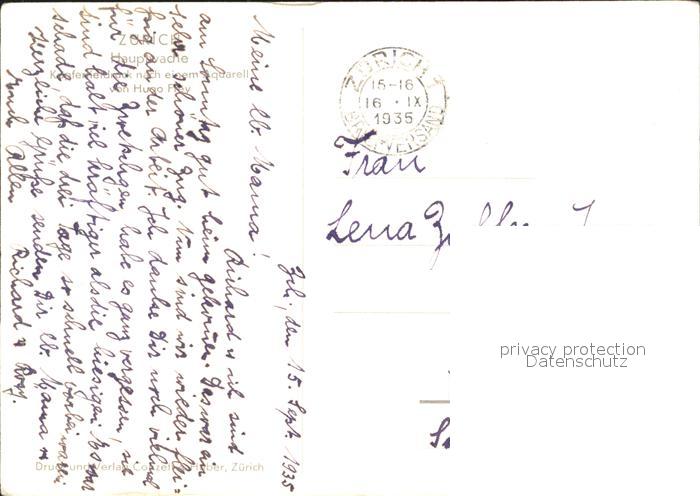 ZÜRICH
Hauptwache
Kupfertiefdruck nach einem Aquarell
von Hugo Frey
Zch, den 15. Sept. 1935
Meine lb. Mama!
Richard & ich sind
am Sonntag gut heim gekommen. Das war ein
sehr schöner Zug. Nun sind wir wieder flei-
an der Arbeit. Ich danke Dir noch vielmal
für die Zwetschgen, habe es ganz vergessen, sie
sind halt viel kräftiger als die hiesigen. Es ist
schade, daß die drei Tage so schnell vorbei waren.
Herzliche Grüße senden Dir lb. Mama &
Euch Allen
Richard & Rosy.
Druck und Verlag Huber, Zürich
ZÜRICH 1
15-16
16 · IX
1935
BRIEFVERSAND
Frau
Lena
privacy protection
Datenschutz